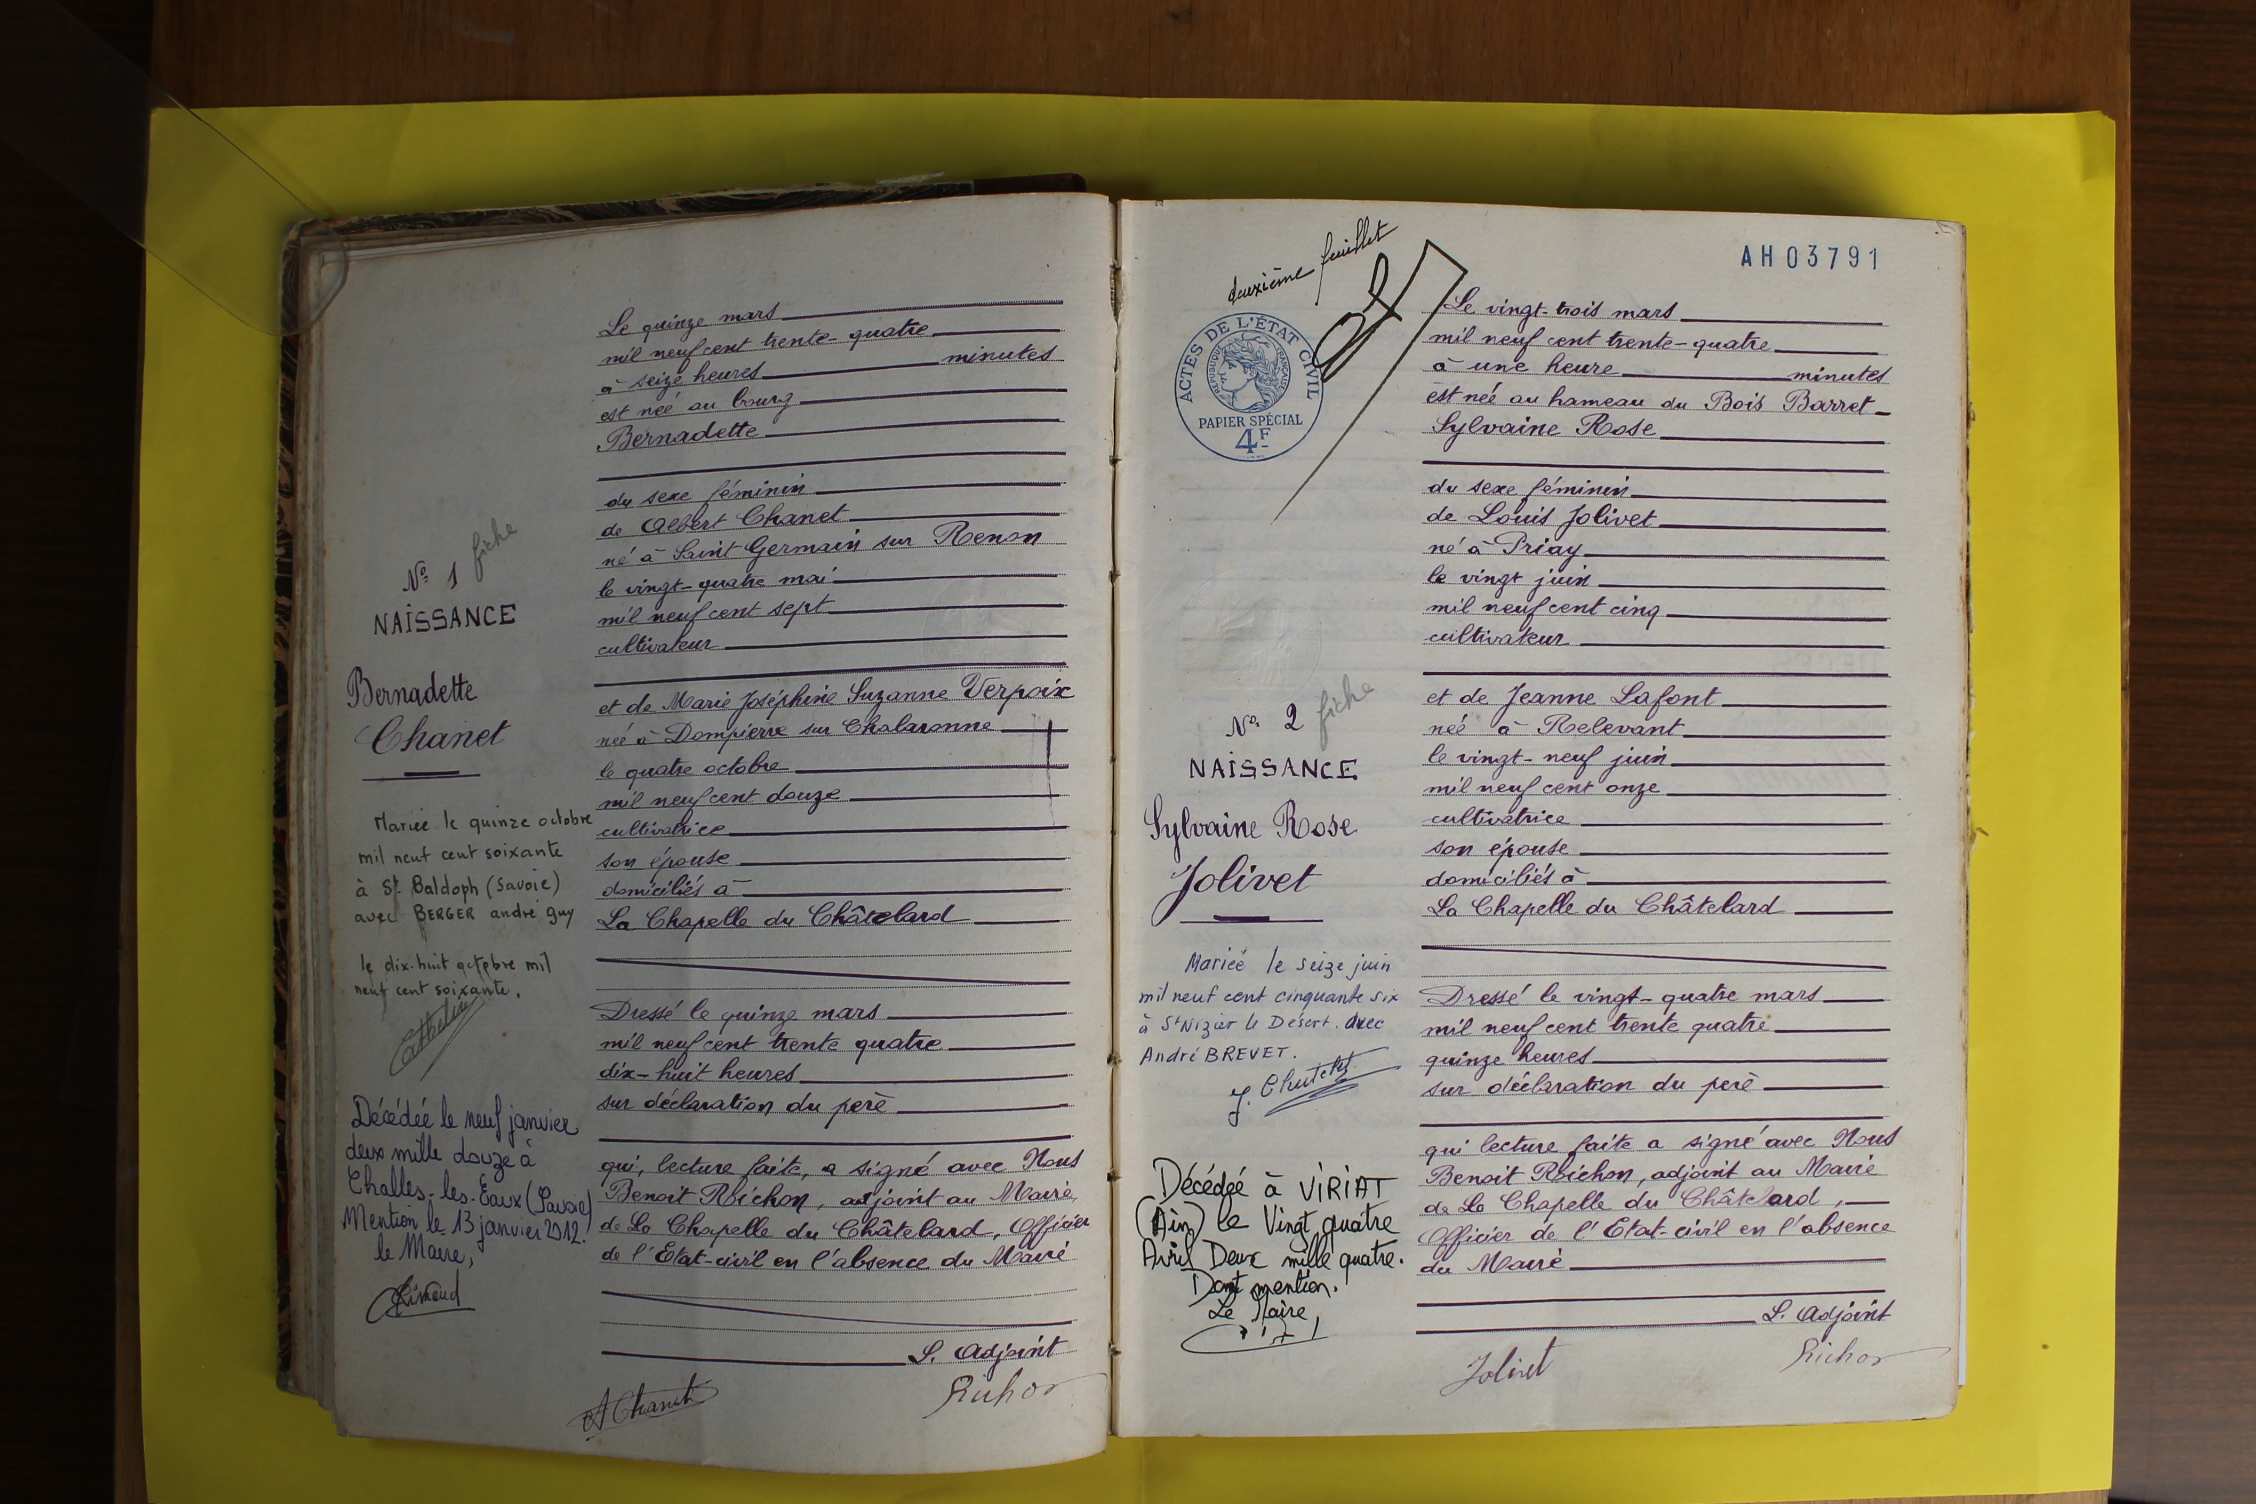 Nº 1 fiche
NAISSANCE
Bernadette
Chanet
Mariée le quinze octobre
mil neuf cent soixante
à St Baldoph (Savoie)
avec BERGER andré guy
le dix-huit octobre mil
neuf cent soixante.
Décédée le neuf janvier
deux mille douze à
Challes-les-Eaux (Savoie)
Mention le 13 janvier 2012.
le Maire,
Le quinze mars
mil neuf cent trente-quatre
à seize heures minutes
est née au bourg
Bernadette
du sexe féminin
de Albert Chanet
né à Saint Germain sur Renon
le vingt-quatre mai
mil neuf cent sept
cultivateur
et de Marie Joséphine Suzanne Verpoix
née à Dompierre sur Chalaronne
le quatre octobre
mil neuf cent douze
cultivatrice
son épouse
domiciliés à
La Chapelle du Châtelard
Dressé le quinze mars
mil neuf cent trente quatre
dix-huit heures
sur déclaration du père
qui, lecture faite, a signé avec Nous
Benoit Reichon, adjoint au Maire
de La Chapelle du Châtelard, Officier
de l'Etat-civil en l'absence du Maire
L. Adjoint
A Chanet
Richon
deuxième feuillet
ACTES DE L'ÉTAT CIVIL
RÉPUBLIQUE FRANÇAISE
PAPIER SPÉCIAL
4F
AH03791
Nº 2 fiche
NAISSANCE
Sylvaine Rose
Jolivet
Mariée le seize juin
mil neuf cent cinquante six
à St Nizier le Désert. avec
André BREVET.
Décédée à VIRIAT
(Ain) le Vingt quatre
Avril Deux mille quatre.
Dont mention.
Le Maire,
Le vingt-trois mars
mil neuf cent trente-quatre
à une heure minutes
est née au hameau du Bois Barret
Sylvaine Rose
du sexe féminin
de Louis Jolivet
né à Priay
le vingt juin
mil neuf cent cinq
cultivateur
et de Jeanne Lafont
née à Relevant
le vingt-neuf juin
mil neuf cent onze
cultivatrice
son épouse
domiciliés à
La Chapelle du Châtelard
Dressé le vingt-quatre mars
mil neuf cent trente quatre
quinze heures
sur déclaration du père
qui lecture faite a signé avec Nous
Benoit Reichon, adjoint au Maire
de La Chapelle du Châtelard,
Officier de l'Etat-civil en l'absence
du Maire
L. Adjoint
Jolivet
Richon